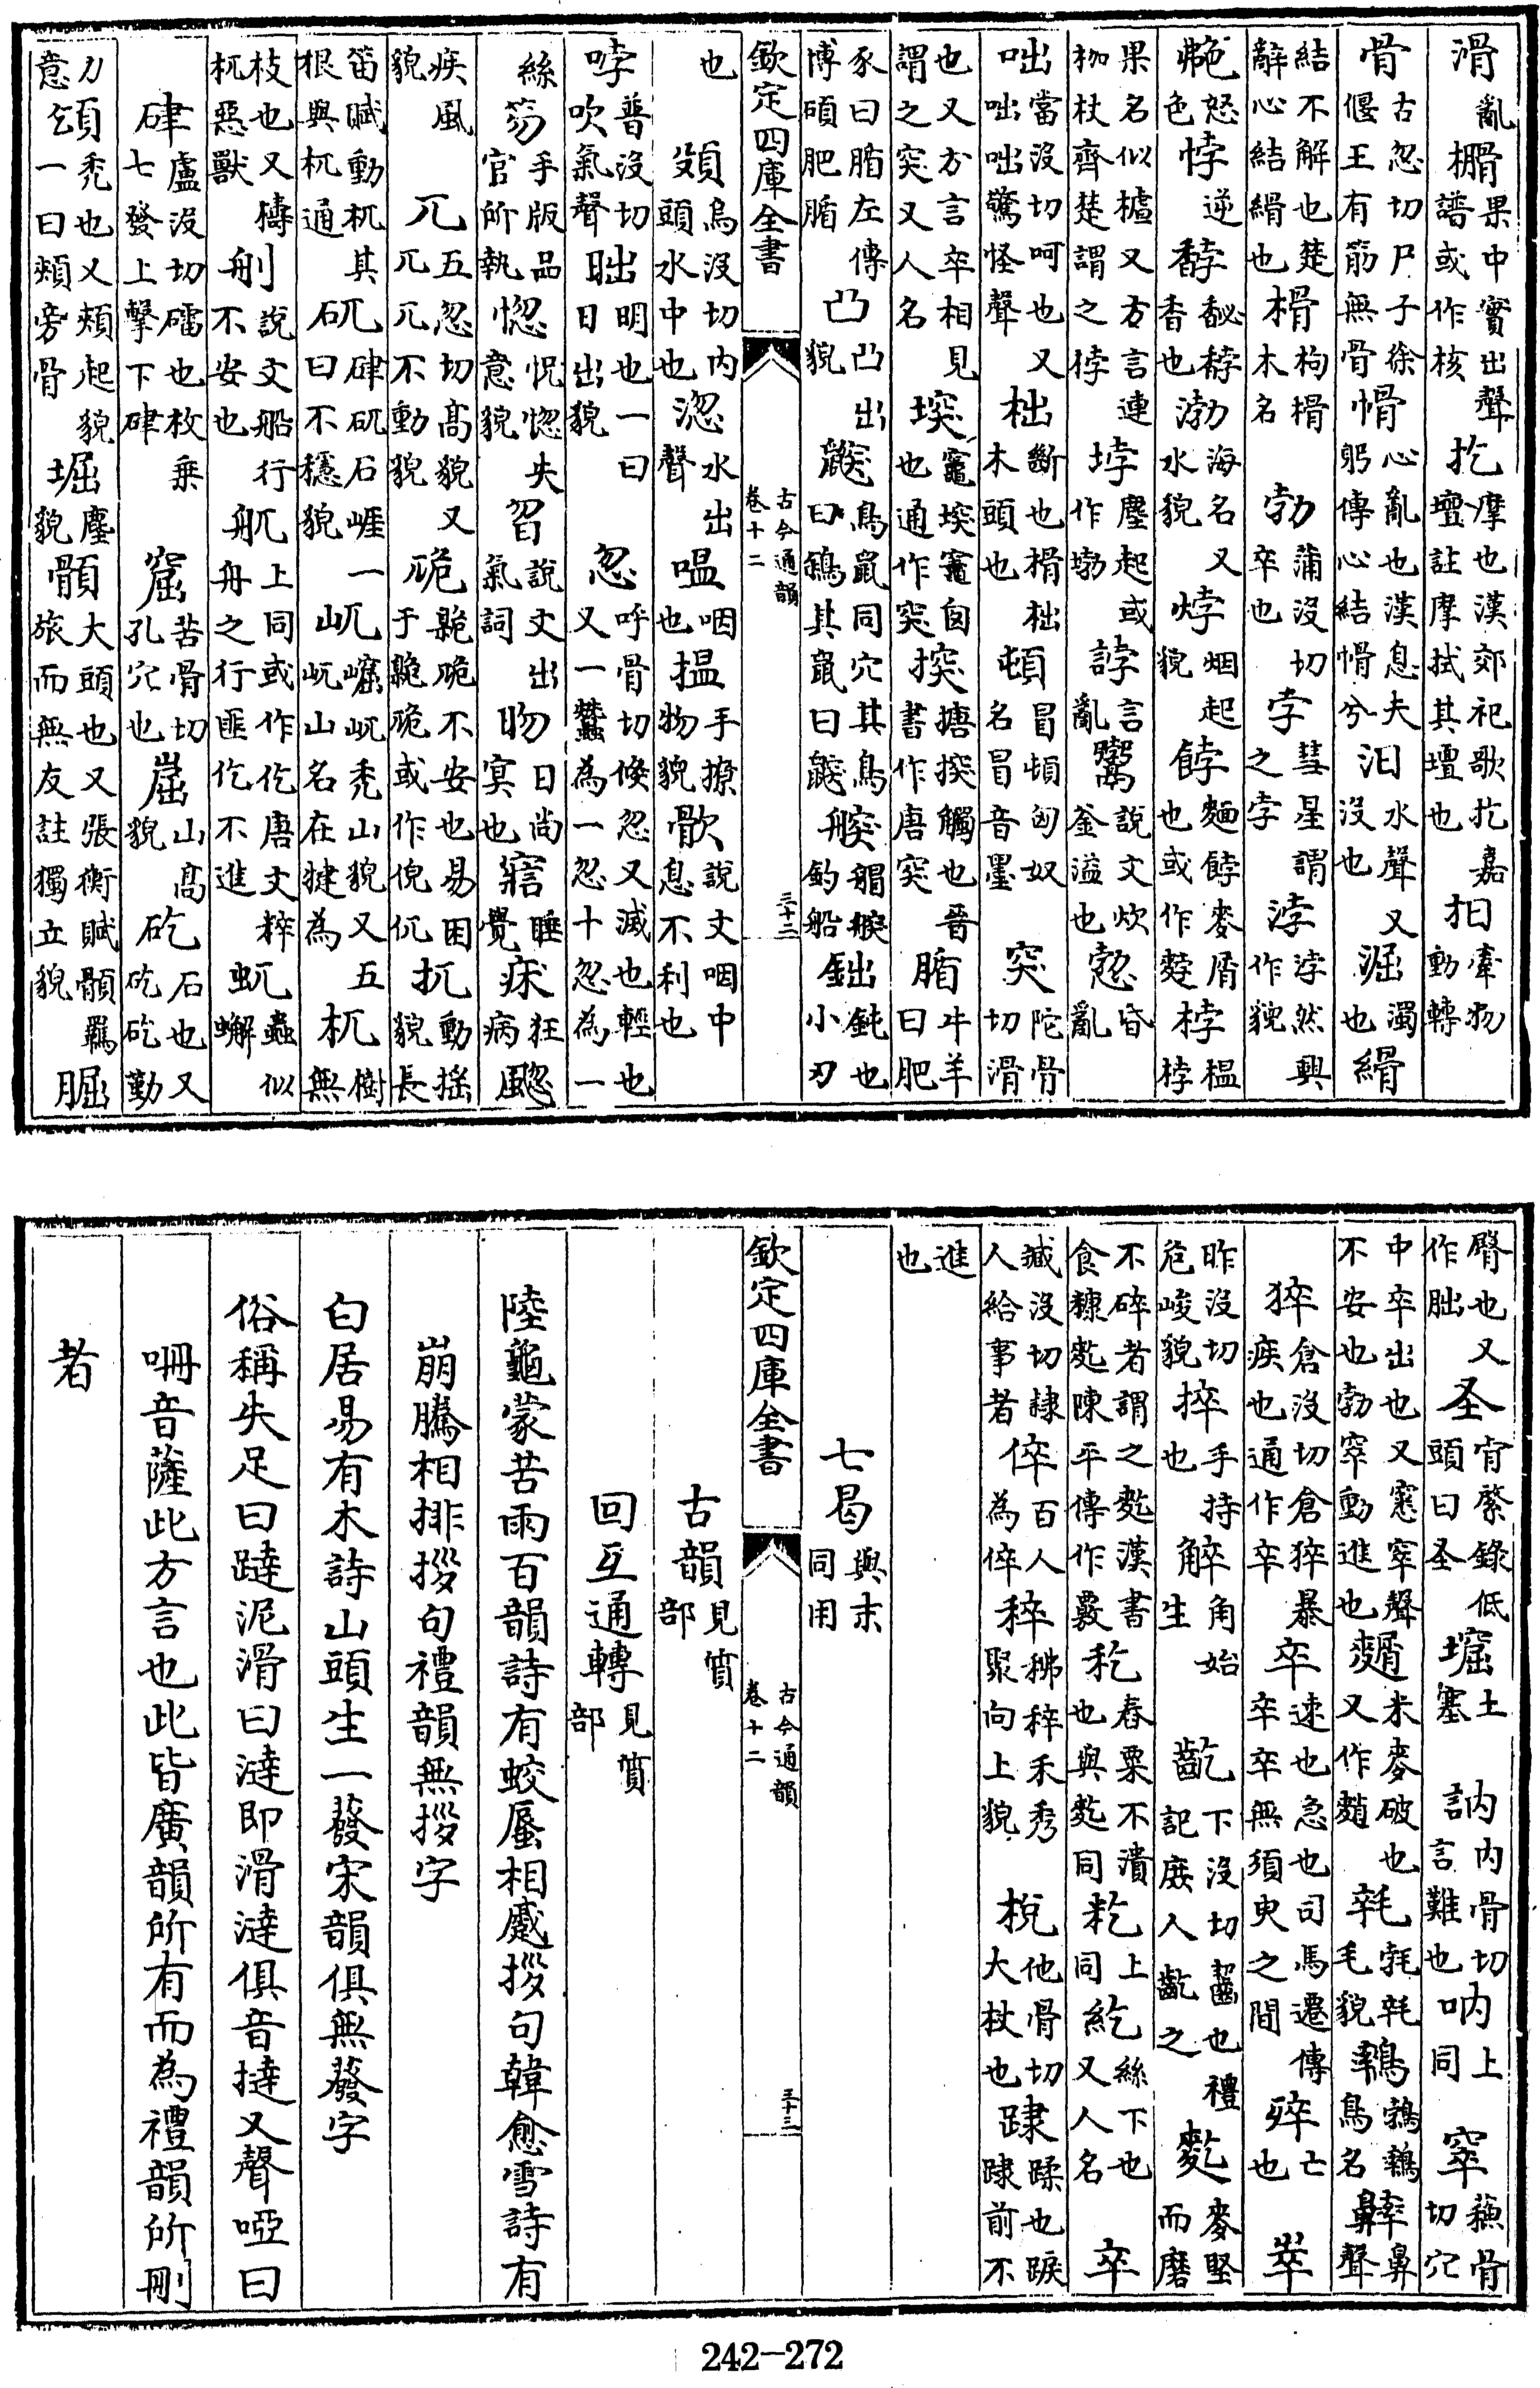 滑亂榾果中實出聲譜或作核扢摩也漢郊祀歌扢嘉壇註摩拭其壇也抇牽物動轉
骨古忽切尸子徐偃王有筋無骨愲心亂也漢息夫躬傳心結愲兮汩水聲又沒也淈濁也縎
結不解也楚辭心結縎也榾枸榾木名勃蒲沒切卒也孛彗星謂之孛浡浡然興作貌
艴怒色悖逆馞馝馞香也渤海名又水貌烰烟起貌餑麵餑麥屑也或作䴯桲榲桲
果名似樝又方言連枷杖齊楚謂之桲埻塵起或作㪍誖言亂䰞說文炊釜溢也惚昏亂
咄當沒切呵也又咄咄驚怪聲柮斷也榾柮木頭也頓冒頓匈奴名冒音墨突陀骨切滑
也又方言卒相見謂之突又人名堗竈堗竈囪也通作突揬搪揬觸也晉書作唐突腯牛羊曰肥
豕曰腯左傳博碩肥腯凸凸出貌鼵鳥鼠同穴其鳥曰鵌其鼠曰鼵䑫䑩䑫釣船鈯鈍也小刃
欽定四庫全書
古今通韻卷十二
三十二
也頞烏沒切內頭水中也淴水出聲嗢咽也搵手撩物貌㱆說文咽中息不利也
哱普沒切吹氣聲朏出明也一曰日出貌忽呼骨切倏忽又滅也輕也又一蠶為一忽十忽為一
絲笏手版品官所執惚怳惚失意貌曶說文出氣詞昒日尚冥也寣睡覺㾁狂病颮
疾風貌兀五忽切高貌又兀兀不動貌卼臲卼不安也易困于臲卼或作倪㐳扤動搖貌長
笛賦動杌其根與杌通矹硉矹石崖一曰不穩貌屼㠥屼禿山貌又五屼山名在犍為杌樹無
枝也又檮杌惡獸刖說文船行不安也舤上同或作仡唐文粹舟之行匪仡不進虼蟲似蠏
硉盧沒切礌也枚乗七發上擊下硉窟苦骨切孔穴也崫山高貌矻石也又矻矻勤
力頎禿也又頰起貌意矻一曰頰旁骨堀塵貌顝大頭也又張衡賦顝羈旅而無友註獨立貌䐇
臀也又作朏圣窅縏錄低頭曰圣堀土塞訥內骨切言難也吶上同窣蘇骨切穴
中卒出也又窸窣聲不安也勃窣動進也䴭米麥破也又作䴰毧㲃㲞毛貌鶟鵓鶟鳥名䶓鼻聲
猝倉沒切倉猝暴疾也通作卒卒速也急也司馬遷傳卒卒無須臾之間殚亡也崒
昨沒切危峻貌捽手持也觪角始生齕下沒切齧也禮記庶人齕之麧麥堅而磨
不碎者謂之麧漢書食糠麧陳平傳作覈籺舂粟不潰也與麧同籺上同紇絲下也又人名卒
臧沒切隸人給事者倅百人為倅稡䅿稡禾秀聚向上貌梲他骨切大杖也踈蹂也踞踈前不
進也
七曷與末同用
欽定四庫全書
古今通韻卷十二
三十三
古韻見質部
回互通轉見質部
陸龜蒙苦雨百韻詩有蛟蜃相蹙拶句韓愈雪詩有
崩騰相排拶句禮韻無拶字
白居易有木詩山頭生一蕟宋韻俱無蕟字
俗稱失足曰躂泥滑曰澾即滑澾俱音撻又聲啞曰
㗨音薩此方言也此皆廣韻所有而為禮韻所刪
者
242—272